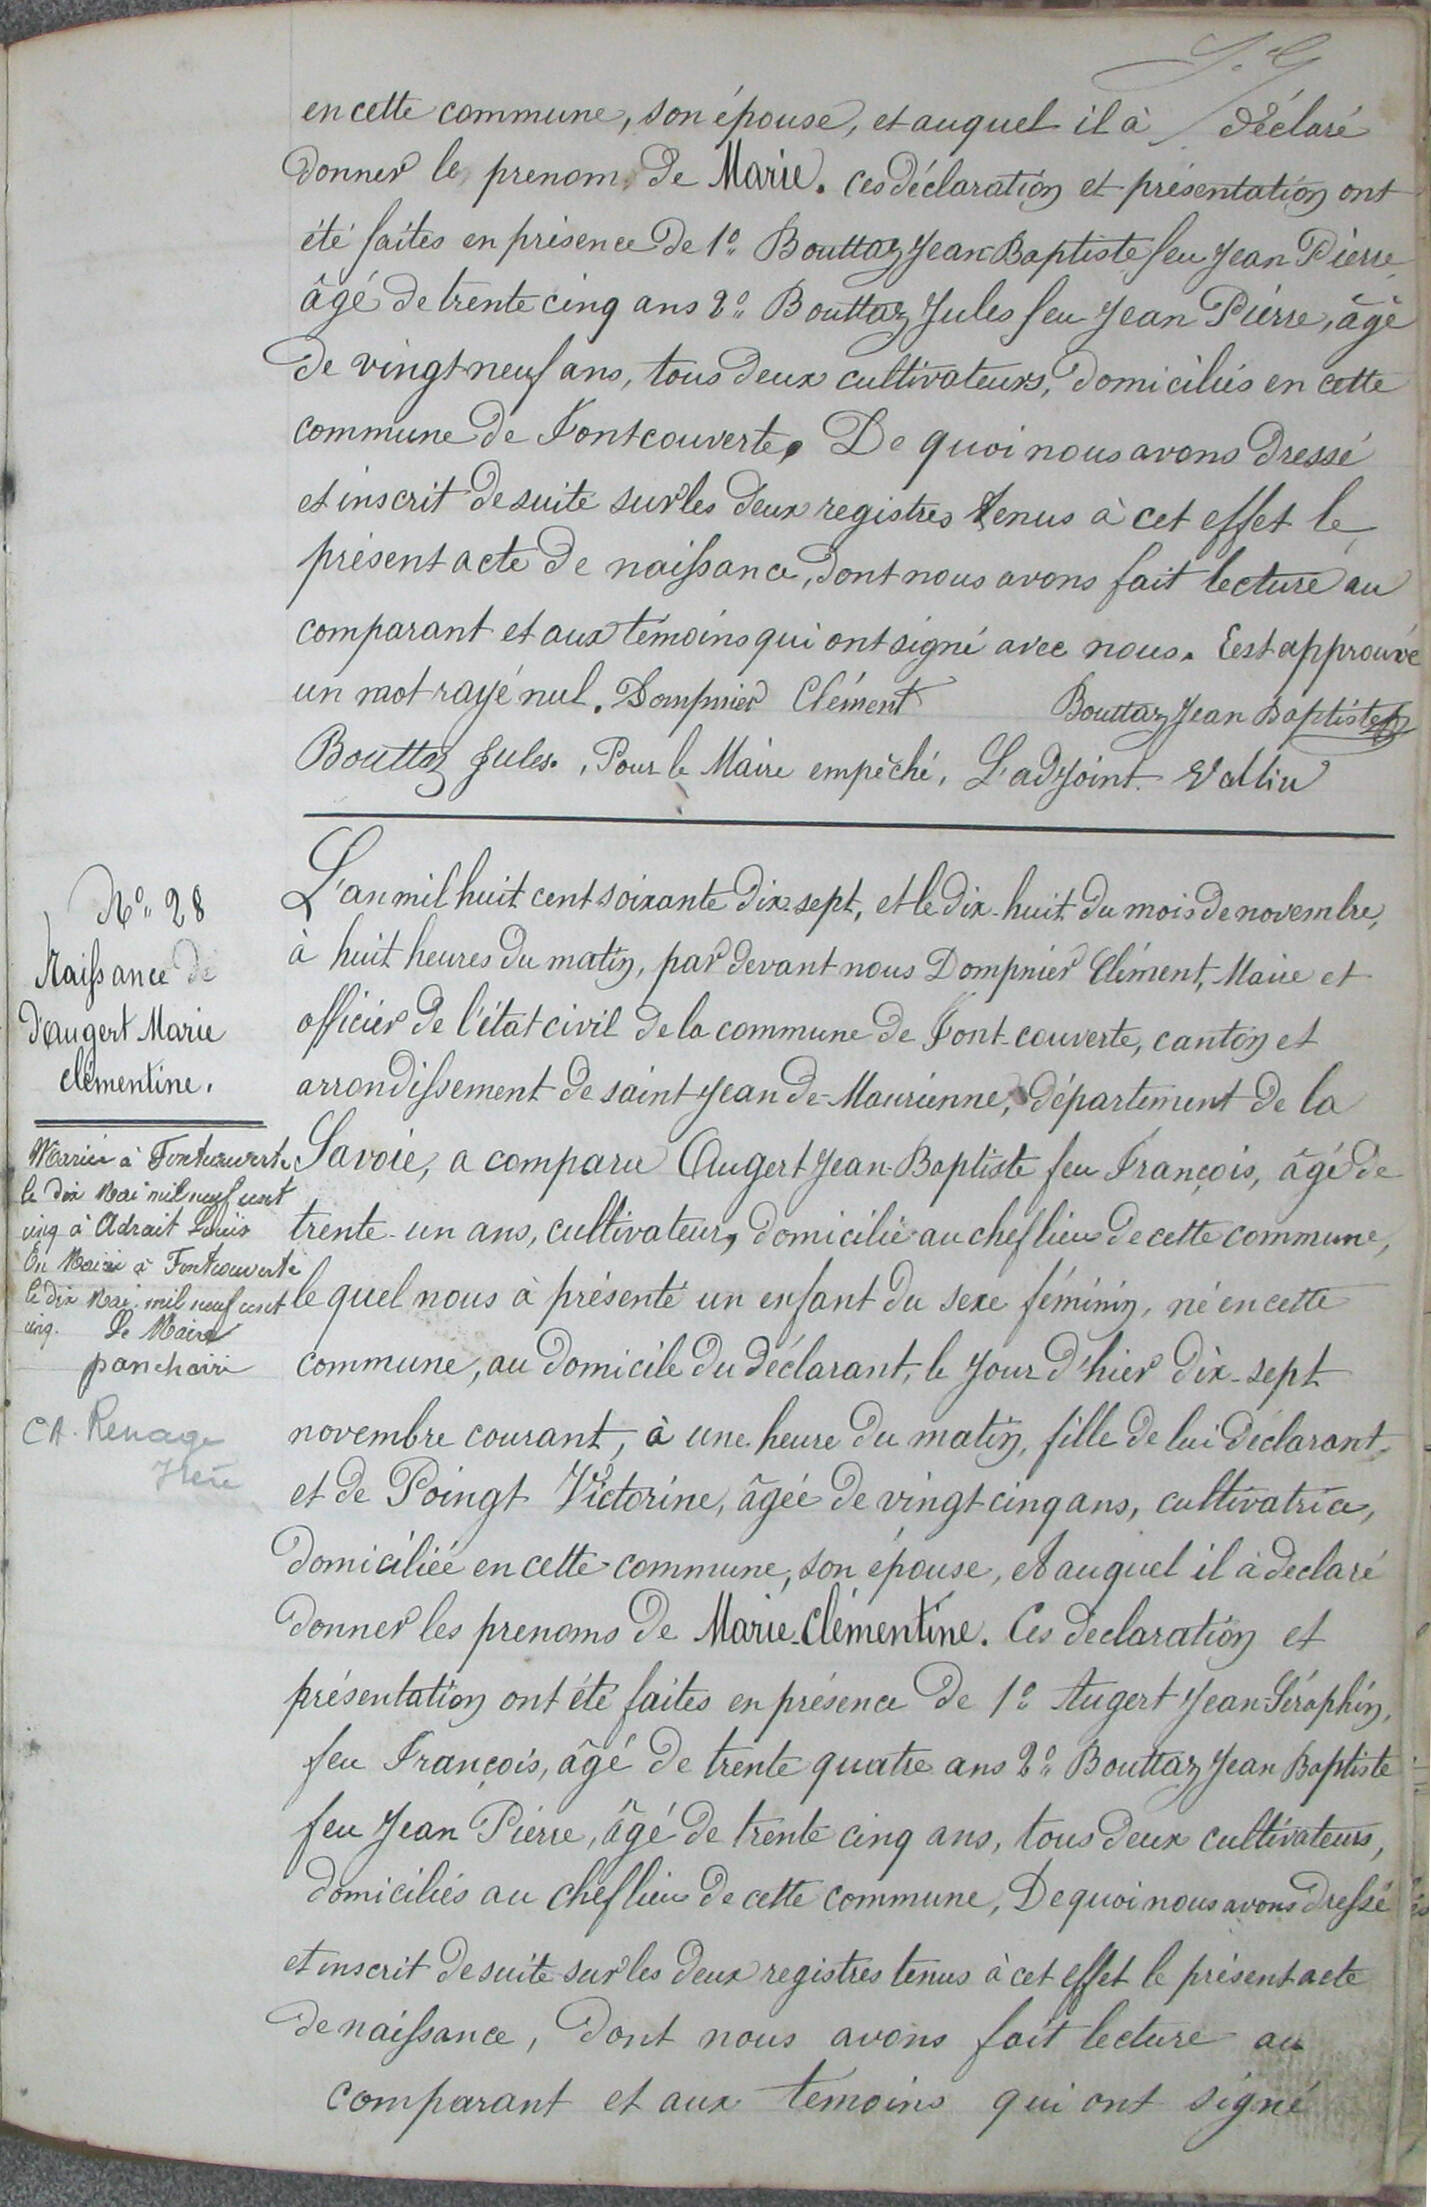 en cette commune, son épouse, et auquel il à déclaré
donner le prenom de Marie. ces déclaration et présentation ont
été faites en présence de 1° Bouttaz Jean Baptiste feu Jean Pierre
âgé de trente cinq ans 2° Bouttaz Jules feu Jean Pierre, âgé
de vingt neuf ans, tous deux cultivateurs, domiciliés en cette
commune de Fontcouverte. De quoi nous avons dressé
et inscrit de suite sur les deux registres tenus à cet effet le
présent acte de naissance, dont nous avons fait lecture au
comparant et aux témoins qui ont signé avec nous. Est approuvé
un mot rayé nul. Dompnier Clément Bouttaz Jean Baptiste
Bouttaz Jules. Pour le Maire empêché, L'adjoint
N° 28
Naissance de
d'augert Marie
clementine.
Mariée à Fontcouverte
le dix Mai mil neuf cent
cinq à Adrait Louis
En Mairie à Fontcouverte
le dix Mai mil neuf cent
cinq. Le Maire
L'an mil huit cent soixante dix-sept, et le dix-huit du mois de novembre,
à huit heures du matin, par devant nous Dompnier Clément, Maire et
officier de l'état civil de la commune de Font-couverte, canton et
arrondissement de saint Jean de-Maurienne, département de la
Savoie, a comparu Augert Jean-Baptiste feu François, âgé de
trente-un ans, cultivateur, domicilié au chef lieu de cette commune,
le quel nous à présenté un enfant du sexe féminin, né en cette
commune, au domicile du déclarant, le jour d'hier dix-sept
novembre courant, à une heure du matin, fille de lui déclarant
et de Poingt Victorine, âgée de vingt cinq ans, cultivatrice,
domiciliée en cette commune, son épouse, et auquel il à declaré
donner les prenoms de Marie-Clémentine. Ces declaration et
présentation ont été faites en présence de 1° Augert Jean-Séraphin,
feu François, âgé de trente quatre ans 2° Bouttaz Jean Baptiste
feu Jean Pierre, âgé de trente cinq ans, tous deux cultivateurs,
domiciliés au chef lieu de cette commune, De quoi nous avons dressé
et inscrit de suite sur les deux registres tenus à cet effet le présent acte
de naissance, dont nous avons fait lecture au
comparant et aux témoins qui ont signé